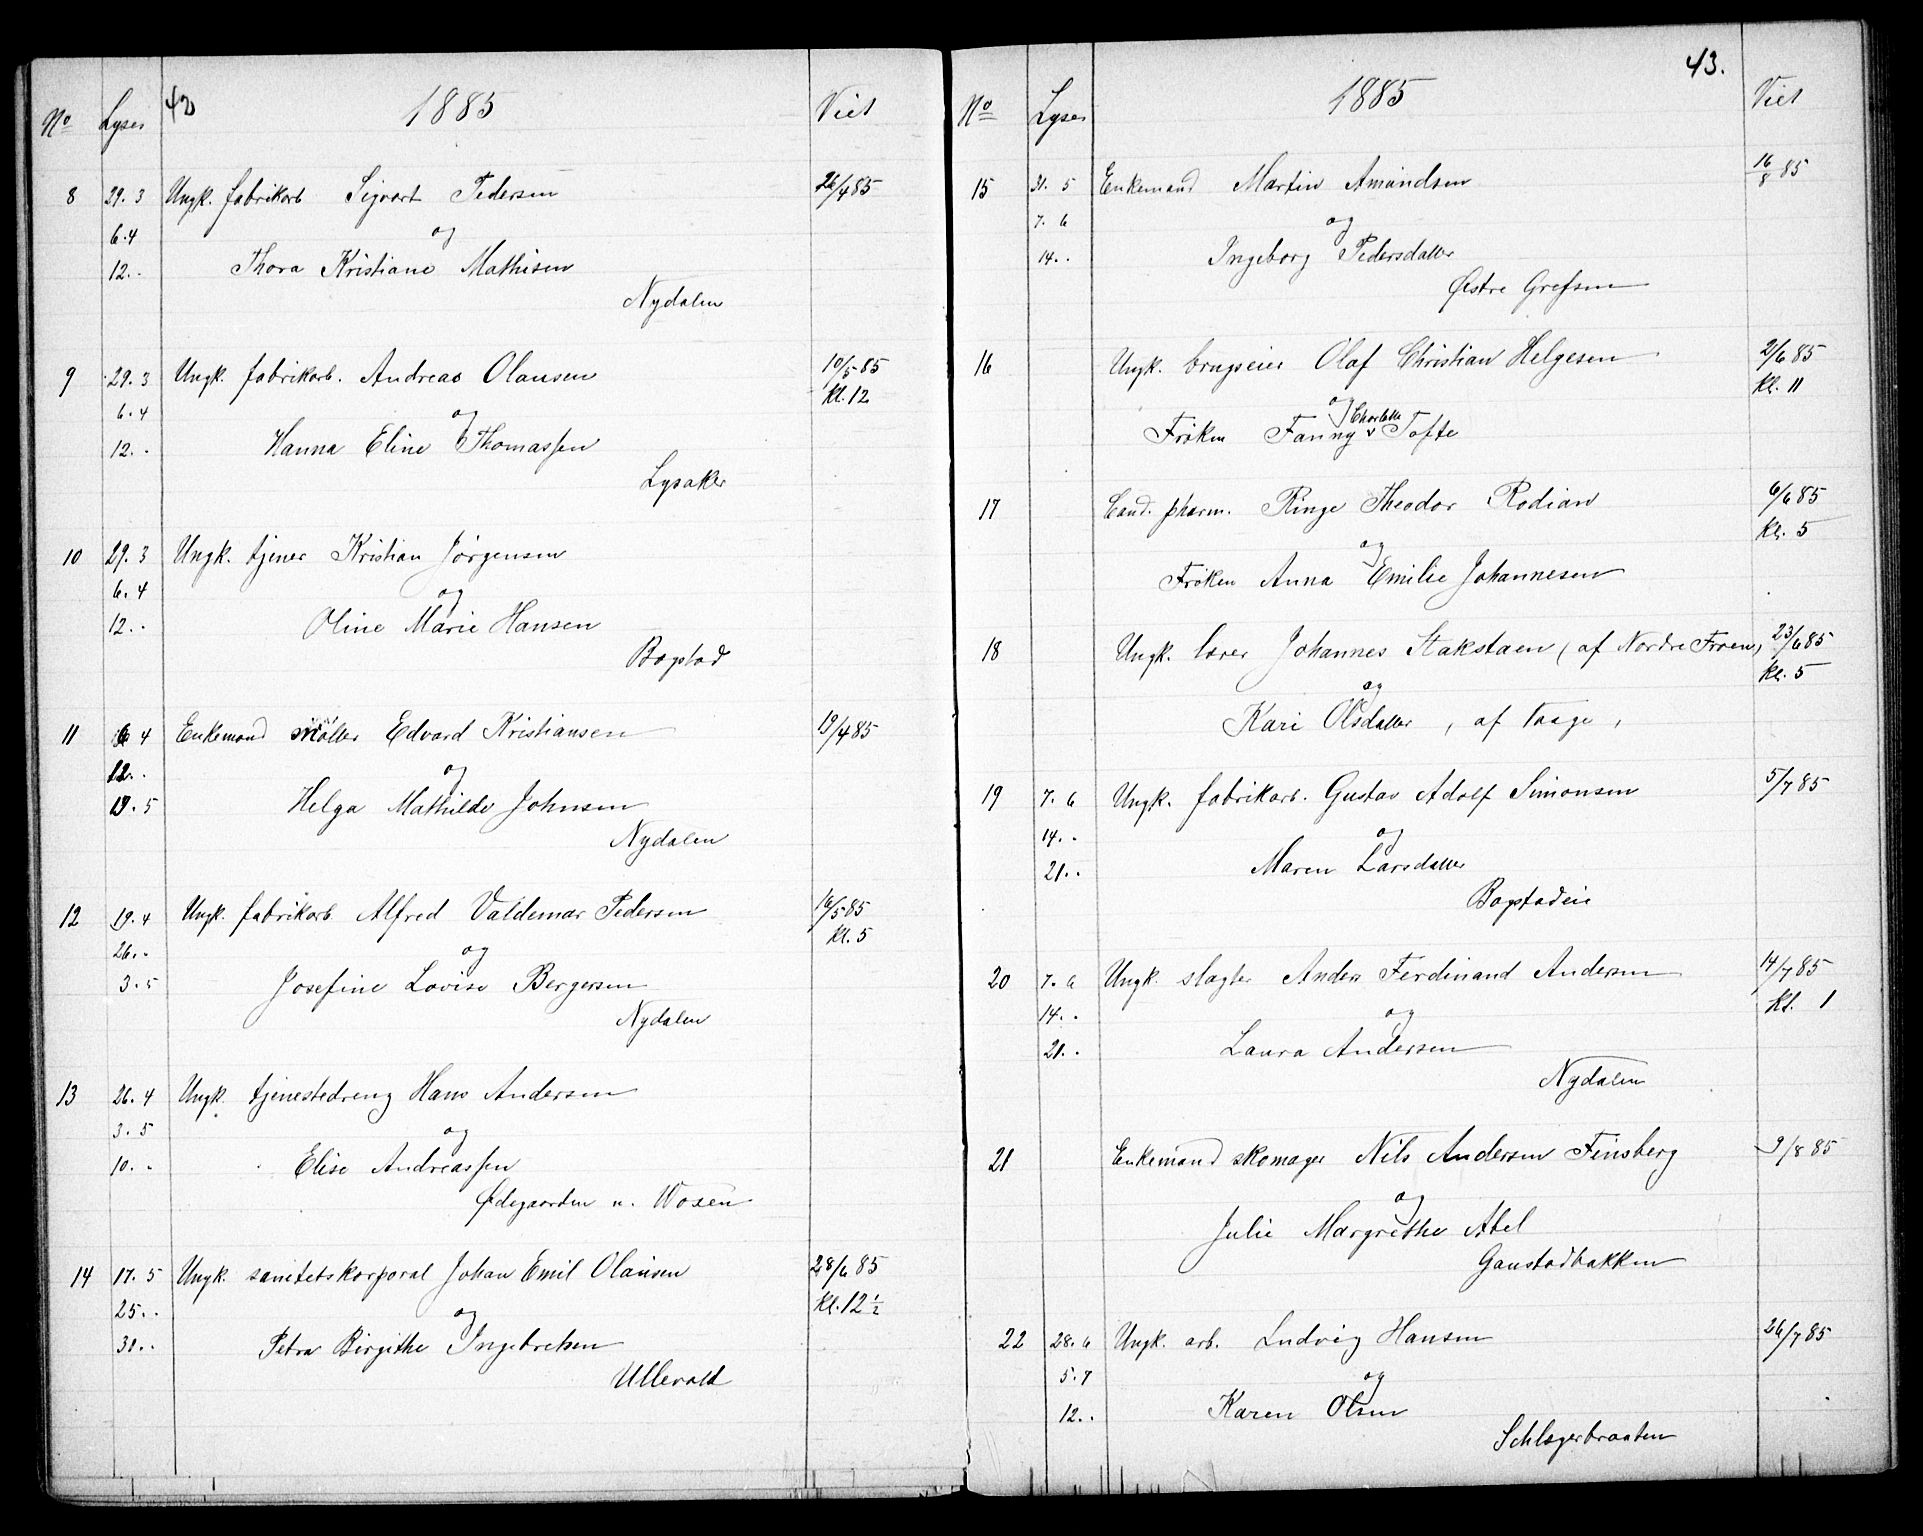 42
1885
No Lyser Viet
8 29.3 Ungk. fabrikarb Sigvart Pedersen 26/4 85
6.4 og
12.- Thora Kristiane Mathisen
Nydalen
9 29.3 Ungk. fabrikarb. Andreas Olausen 10/5 85
6.4 og Kl. 12
12.- Hanna Eline Thomassen
Lysaker
10 29.3 Ungk. tjener Kristian Jörgensen
6.4 og
12.- Oline Marie Hansen
Bogstad
11 6 4 Enkemand möller Edvard Kristiansen 19/4 85
12.- og
19.5 Helga Mathilde Johnsen
Nydalen
12 19.4 Ungk. fabrikarb. Alfred Valdemar Pedersen 16/5 85
26.- og Kl. 5
3.5 Josefine Lovise Bergersen
Nydalen
13 26.4 Ungk. tjenestedreng Hans Andersen
3.5 og
10.- Elise Andreassen
Ødegaarden u. Woxen
14 17.5 Ungk. sanitetskorporal Johan Emil Olausen 28/6 85
25.- og Kl. 12 1/2
30.- Petra Birgithe Ingebretsen
Ullevold
43.
1885
No Lyser Viet
15 31.5 Enkemand Martin Amundsen 16/8 85
7.6 og
14.- Ingeborg Pedersdatter
Østre Grefsen
16 Ungk. brugseier Olaf Christian Helgesen 2/6 85
og Kl. 11
Charlotte
Frøken Fanny v Tofte
17 Cand. pharm. Ringe Theodor Rodian 6/6 85
og Kl. 5
Frøken Anna Emilie Johannesen
18 Ungk. lærer Johannes Stakstaen (af Nordre Froen) 23/6 85
og Kl. 5
Kari Olsdatter, af Vaage,
19 7.6 Ungk. fabrikarb. Gustav Adolf Simonsen 5/7 85
14.- og
21.- Maren Larsdatter
Bogstadeie
20 7.6 Ungk. slagter Anders Ferdinand Andersen 14/7 85
14.- og Kl. 1
21.- Laura Andersen
Nydalen
21 Enkemand skomager Nils Andersen Finsberg 9/8 85
og
Julie Margrethe Abel
Gaustadbakken
22 28.6 Ungk. arb. Ludvig Hansen 26/7 85
5.7 og
12.- Karen Olsen
Schlægerbraaten